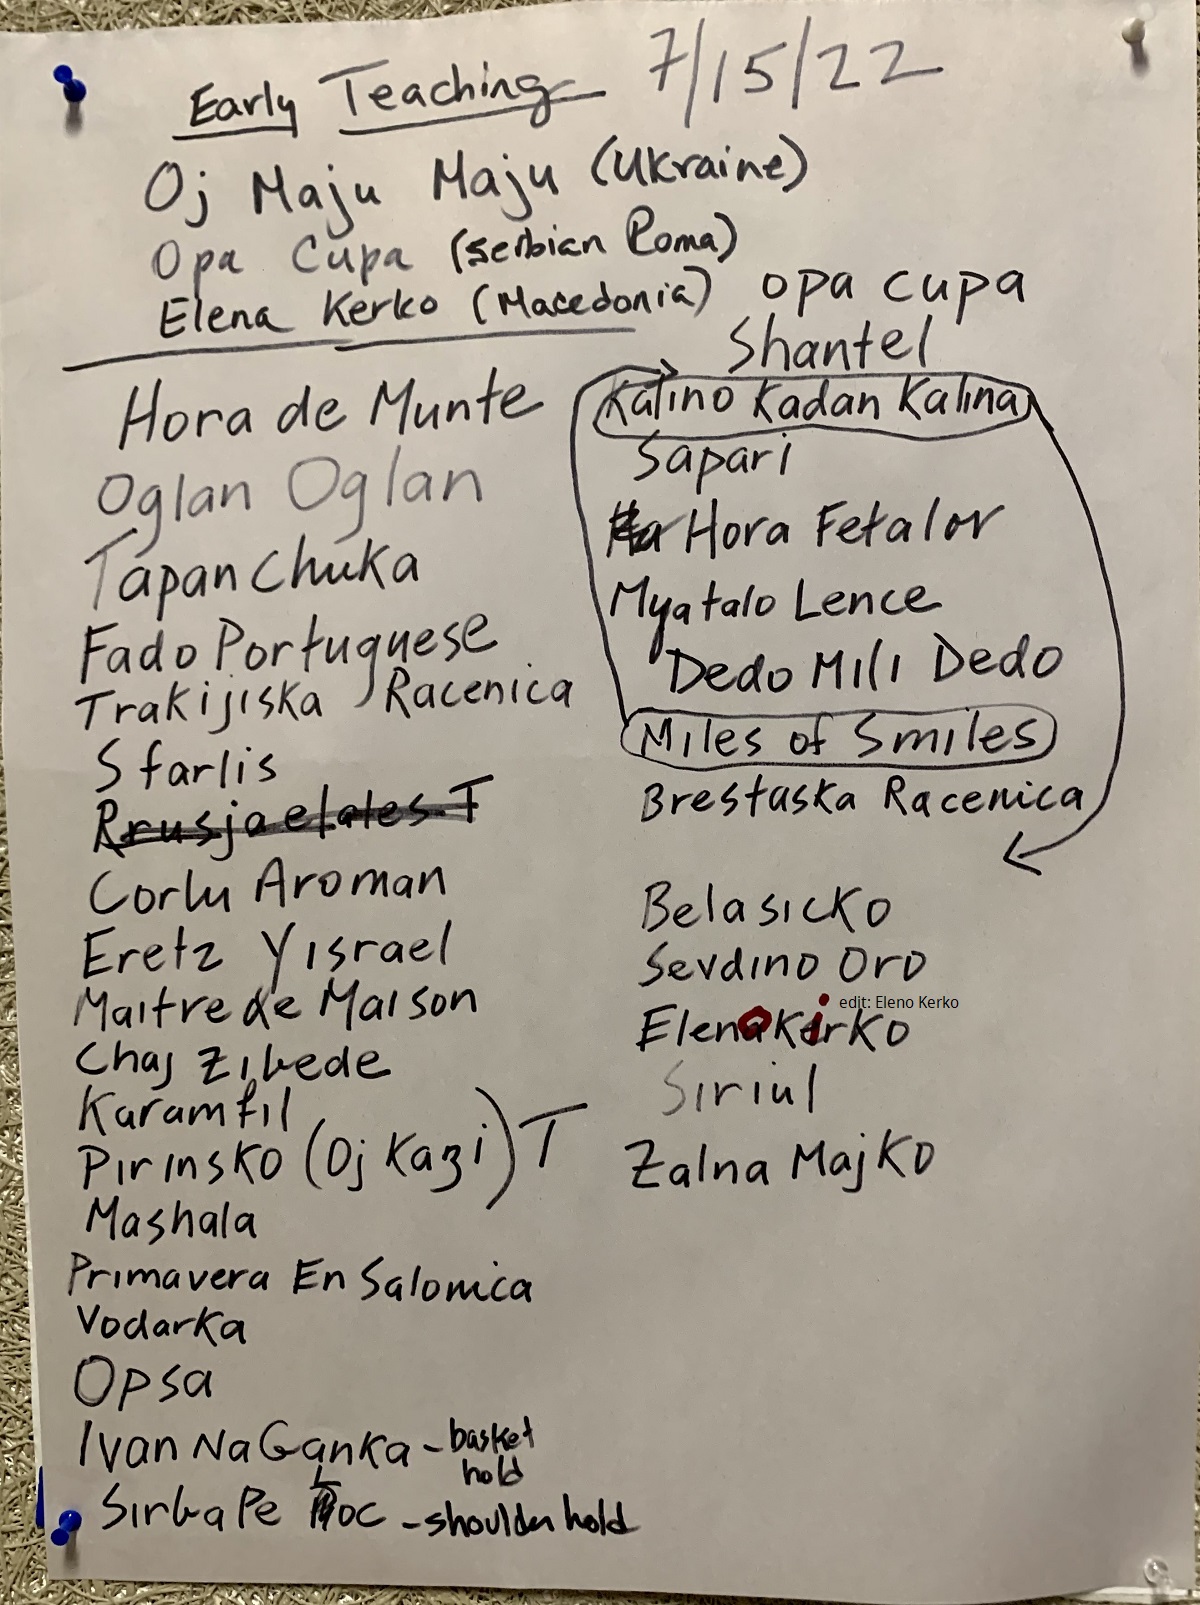 Early Teaching 7/15/22
Oj Maju Maju (Ukraine)
Opa Cupa (Serbian Roma)
Elena Kerko (Macedonia)
Hora de Munte
Oglan Oglan
Tapan Chuka
Fado Portuguese
Trakijiska Racenica
Sfarlis
Corlu Aroman
Eretz Yisrael
Maitre de Maison
Chaj Zibede
Karamfil
Pirinsko (Oj Kazi) T
Mashala
Primavera En Salonica
Vodarka
Opsa
Ivan Na Ganka - basket
hold
Sirba Pe Loc - shoulder hold
opa cupa
Shantel
Kalino Kadan Kalina
Sapari
Hora Fetalor
Myatalo Lence
Dedo Mili Dedo
Miles of Smiles
Brestaska Racenica
Belasicko
Sevdino Oro
Eleno Kirko
edit: Eleno Kerko
Siriul
Zalna Majko